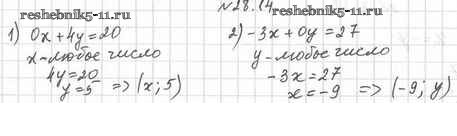 №28.14
reshebnik5-11.ru
1) 0x+4y=20
x-любое число
4y=20
y=5 => (x; 5)
reshebnik5-11.ru
2) -3x+0y=27
y-любое число
-3x=27
x=-9 => (-9; y)